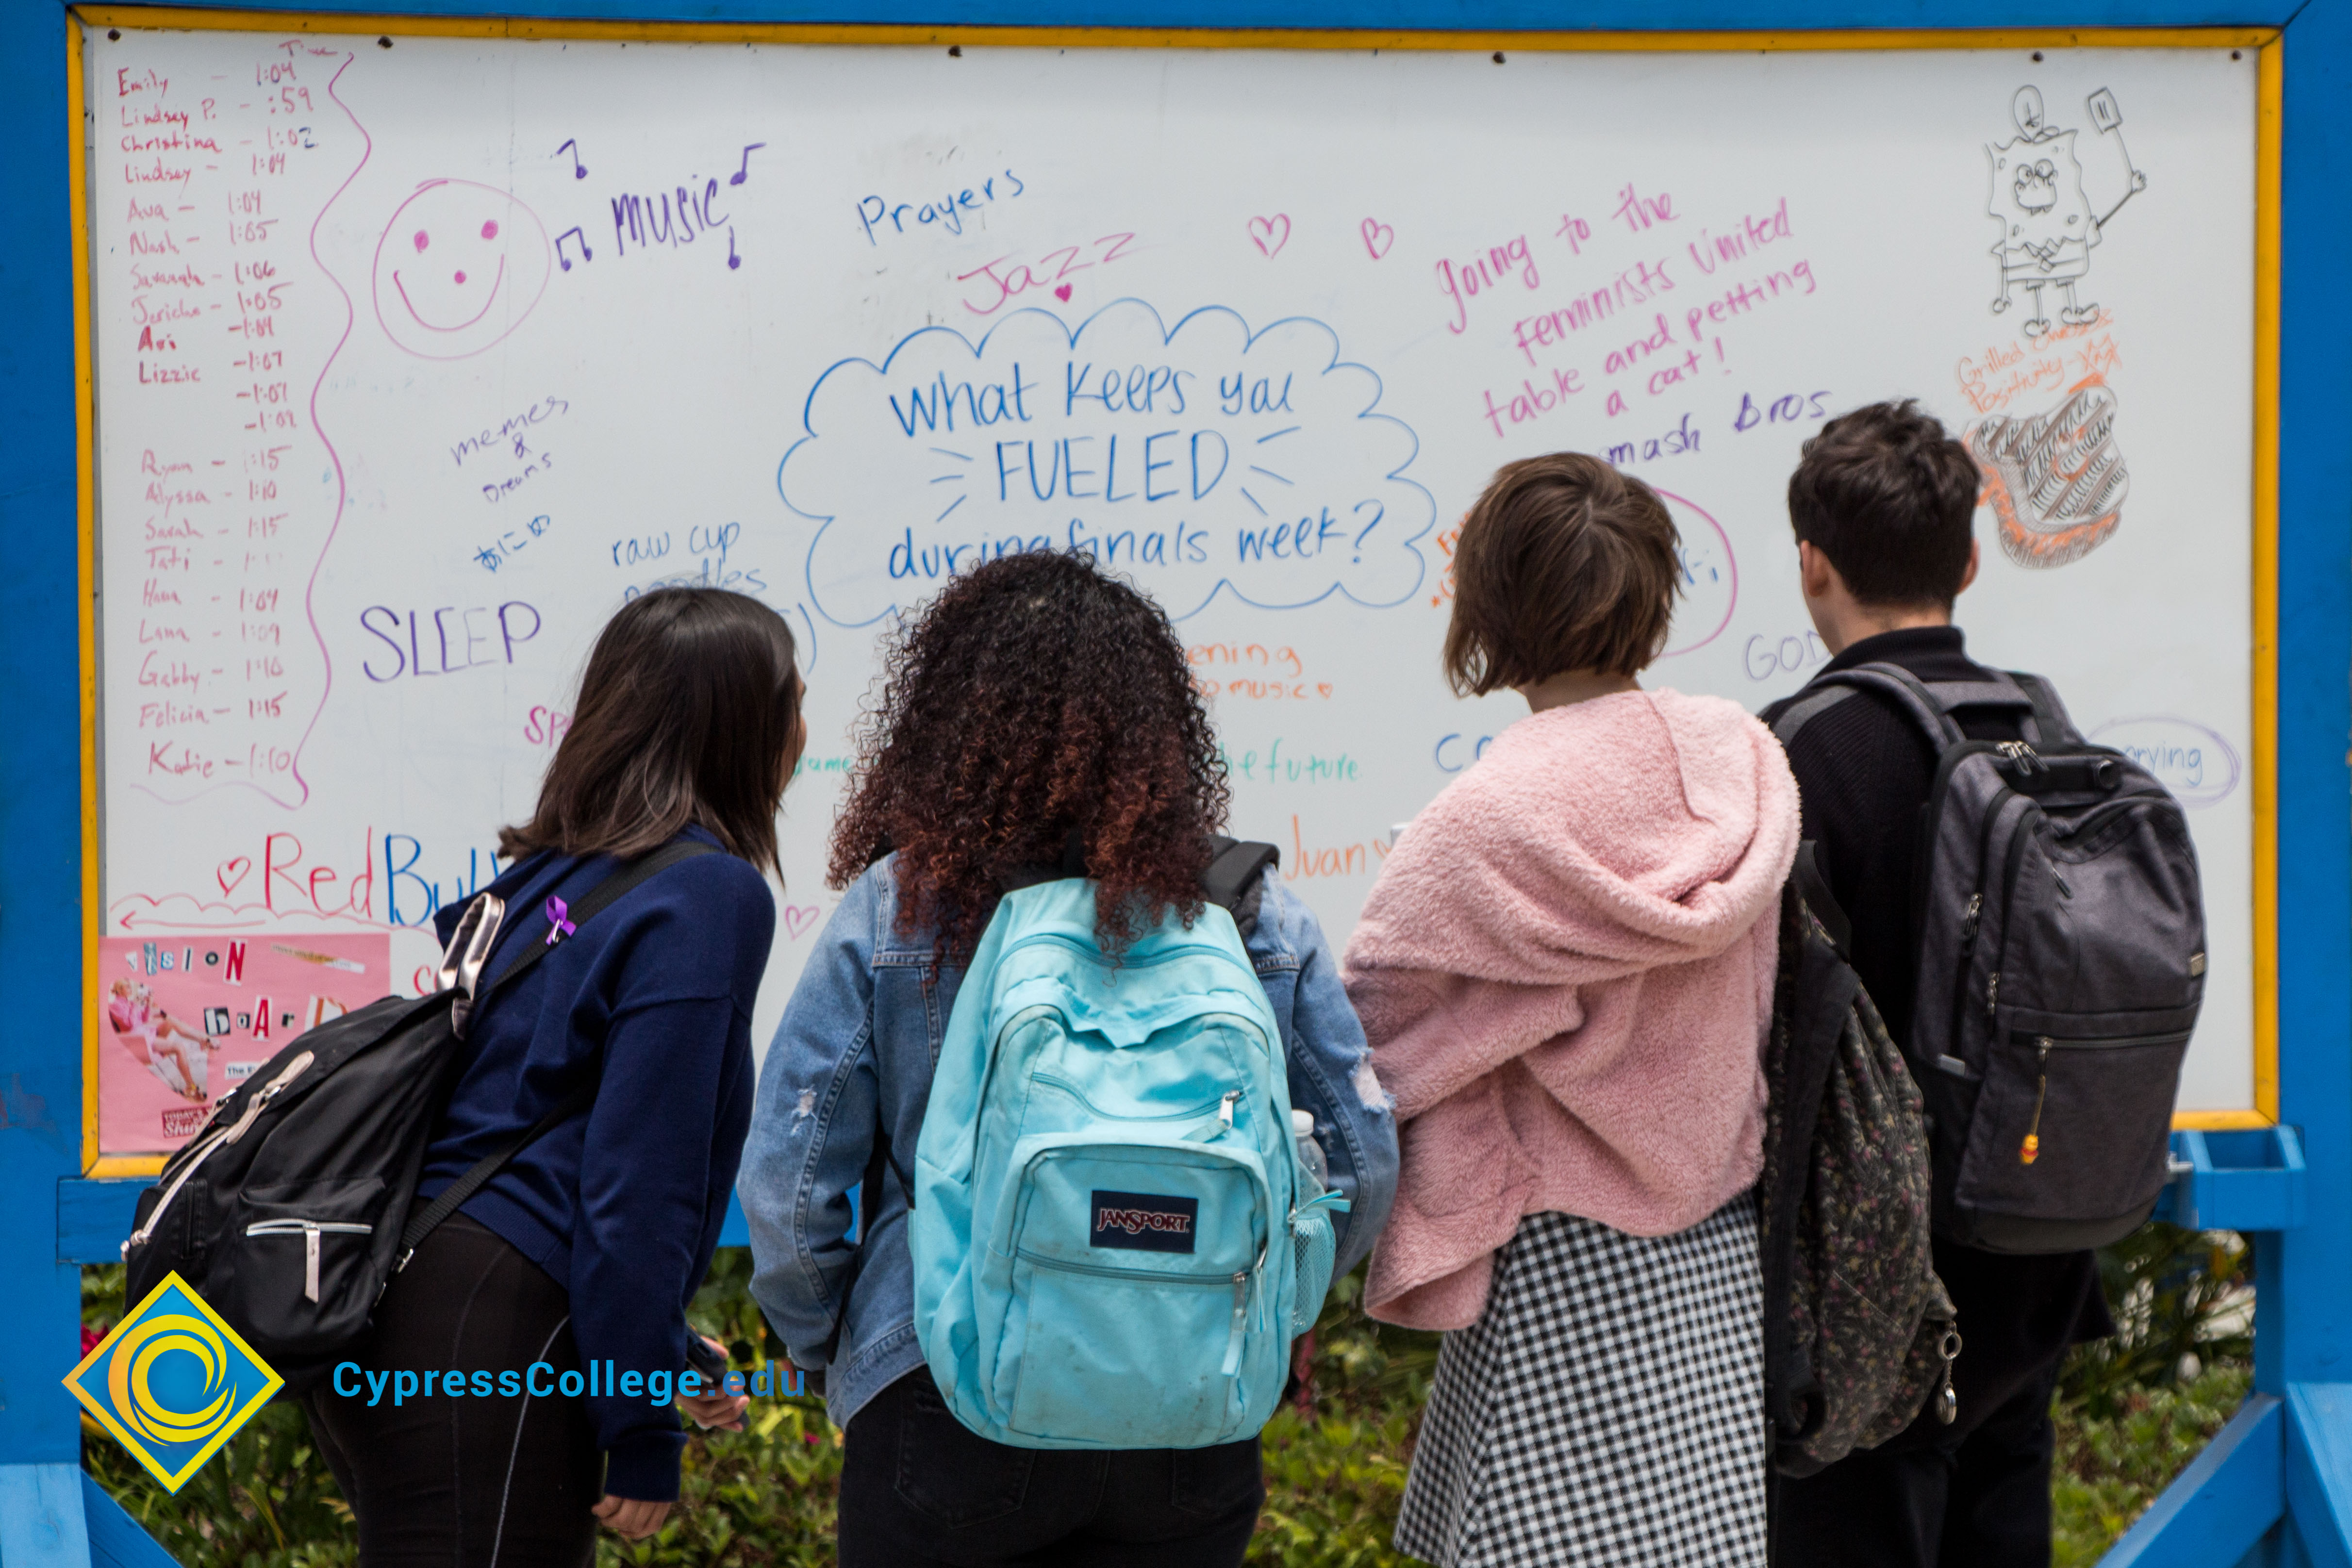 Time
Emily - 1:04
Lindsey P. - :59
Christina - 1:02
Lindsay - 1:04
Ava - 1:04
Nash - 1:05
Savannah - 1:06
Jericho - 1:05
Ari - 1:04
Lizzie - 1:07
- 1:07
- 1:09
Ryan - 1:15
Alyssa - 1:10
Sarah - 1:15
Tati -
Hana - 1:04
Lana - 1:09
Gabby - 1:10
Felicia - 1:15
Katie - 1:10
music
Prayers
Jazz
going to the
Feminists United
table and petting
a cat!
mash Bros
Grilled Cheese
Positivity
What keeps you
FUELED
during finals week?
memes
&
Dreams
raw cup
noodles
SLEEP
ening
music
GOD
the future.
crying
Juan
Red Bull
VISION
boArD
JANSPORT
CypressCollege.edu